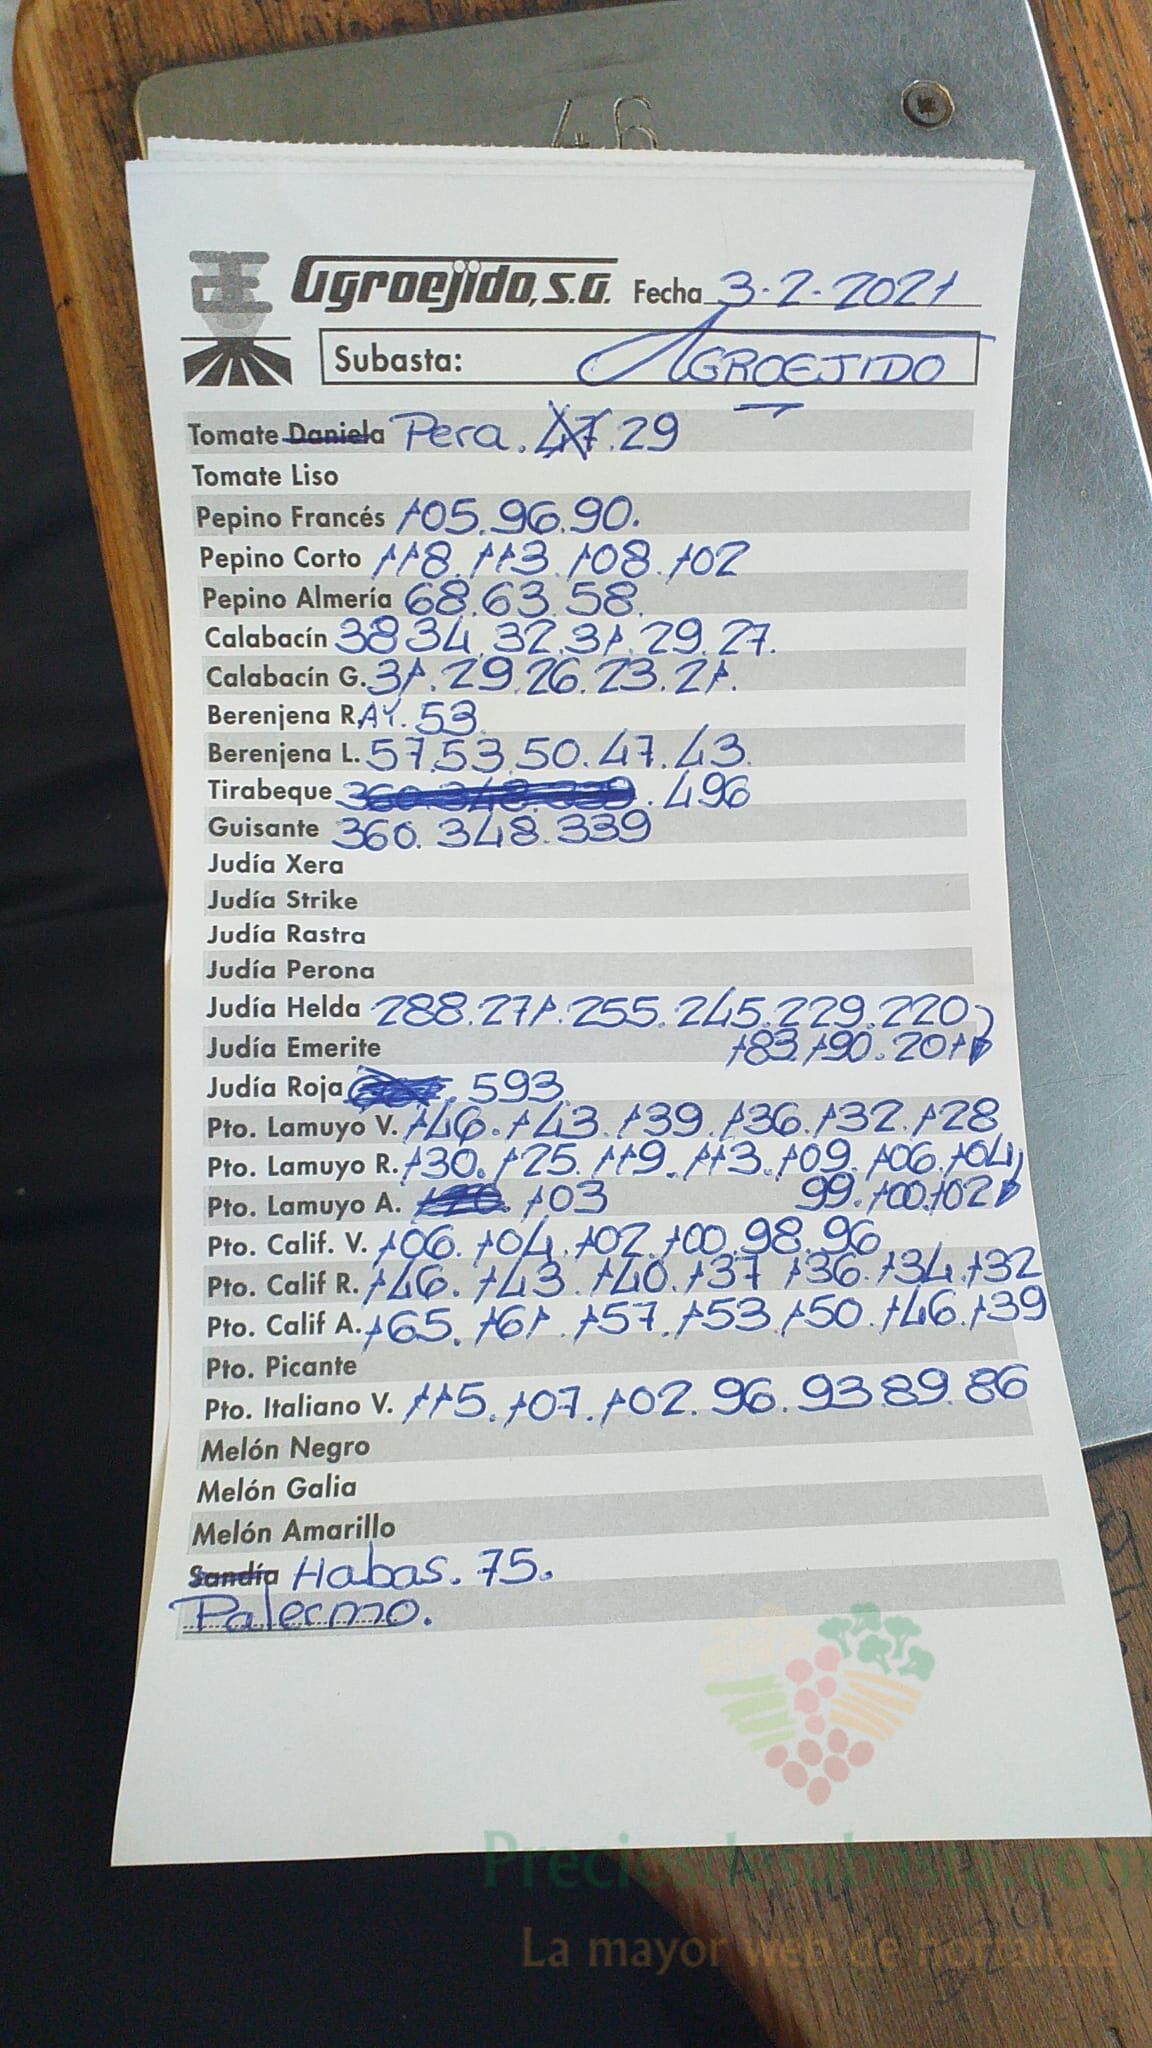 46
Agroejido, S.A. Fecha 3-2-2021
Subasta: AGROEJIDO
Tomate Daniela Pera. 47.29
Tomate Liso
Pepino Francés 105.96.90.
Pepino Corto 118.113.108.102
Pepino Almería 68.63.58.
Calabacín 38 34.32.31.29.27.
Calabacín G. 31.29.26.23.21.
Berenjena R.AY. 53
Berenjena L. 57.53.50.47.43.
Tirabeque 360.348.339.496
Guisante 360.348.339
Judía Xera
Judía Strike
Judía Rastra
Judía Perona
Judía Helda 288.271.255.245.229.220
Judía Emerite 183.190.201
Judía Roja . 593
Pto. Lamuyo V. 146.143.139.136.132.128
Pto. Lamuyo R. 130.125.119.113.109.106.104
Pto. Lamuyo A. 103 99.100.102
Pto. Calif. V. 106.104.102.100.98.96
Pto. Calif R. 146.143.140.137 136.134.132
Pto. Calif A. 165.161.157.153.150.146.139
Pto. Picante
Pto. Italiano V. 115.107.102.96.93 89.86
Melón Negro
Melón Galia
Melón Amarillo
Sandía Habas. 75.
Palermo.
Preciosdesubasta.com
La mayor web de hortalizas